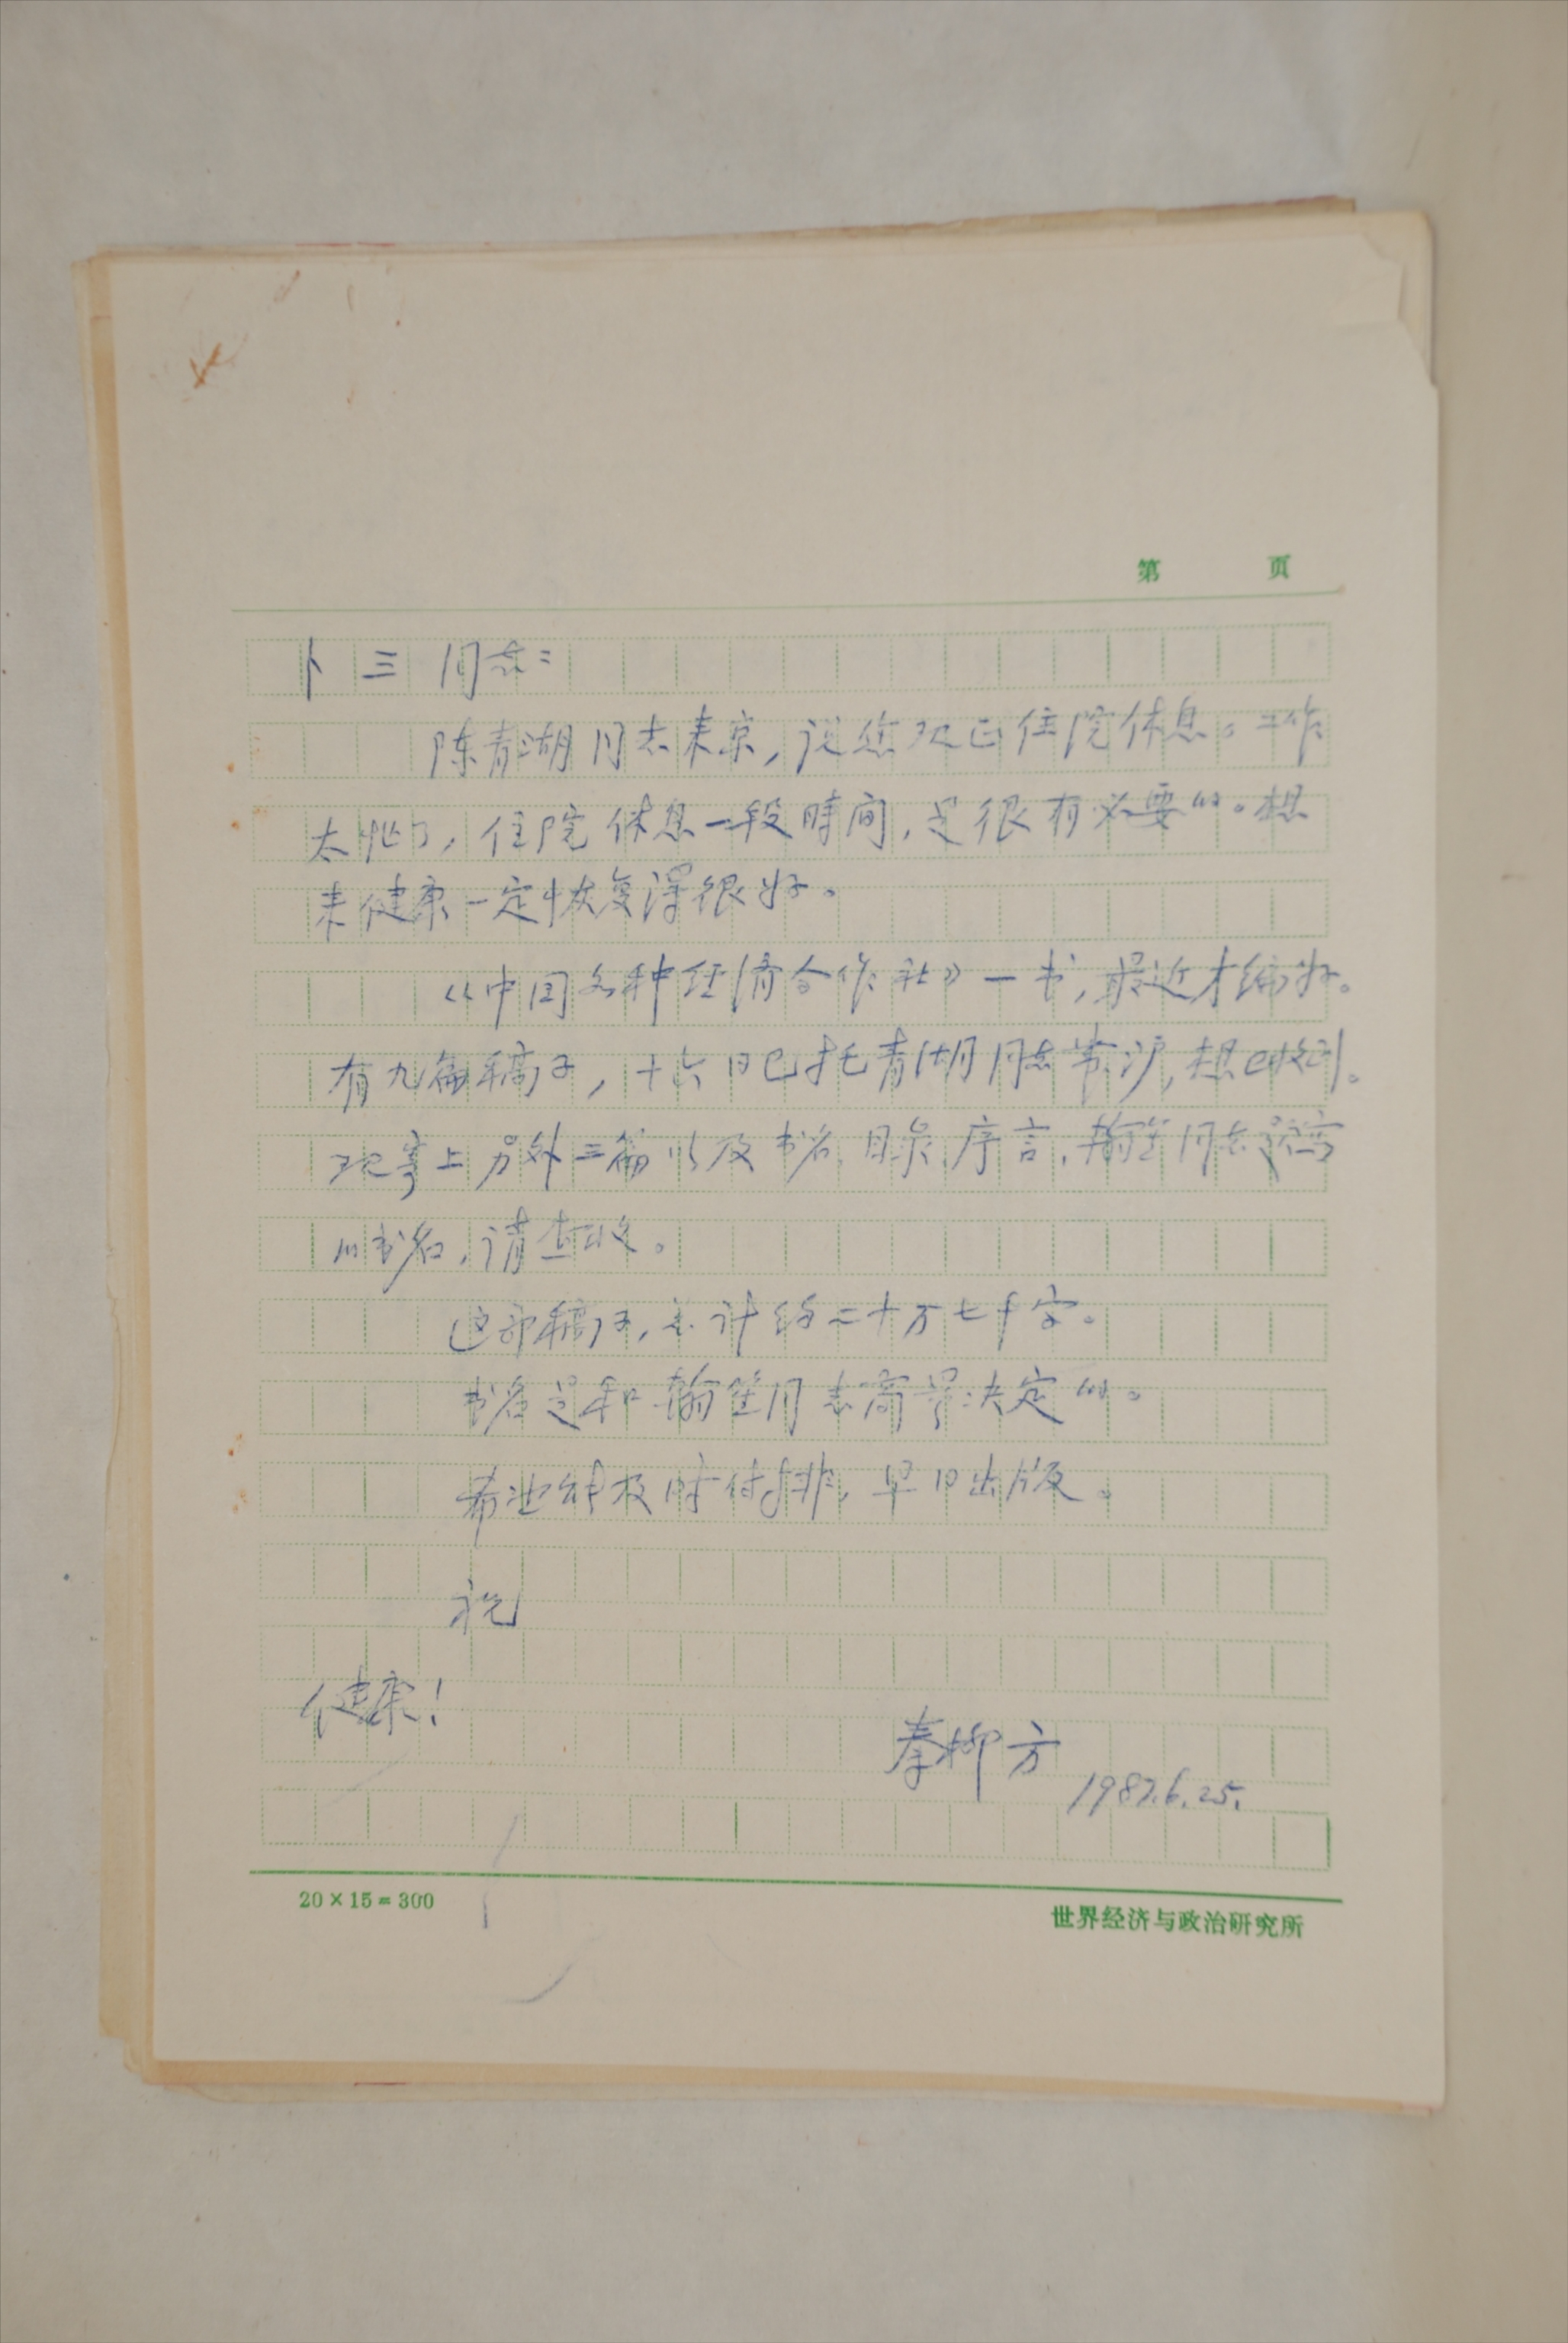 第 页
卜三同志：
陈青湖同志来京，说您现正住院休息。工作
太忙了，住院休息一段時间，是很有必要的。想
来健康一定恢复得很好。
《中国各种经济合作社》一书，最近才编好。
有九篇稿子，十六日已托青湖同志带沪，想已收到。
现寄上另外三篇以及书名、目录、序言、翰笙同志题写
的书名，请查收。
这部稿子，总计约二十万七千字。
书名是和翰笙同志商量决定的。
希池能及时付排，早日出版。
祝
健康！
秦柳方
1987.6.25.
20×15=300
世界经济与政治研究所